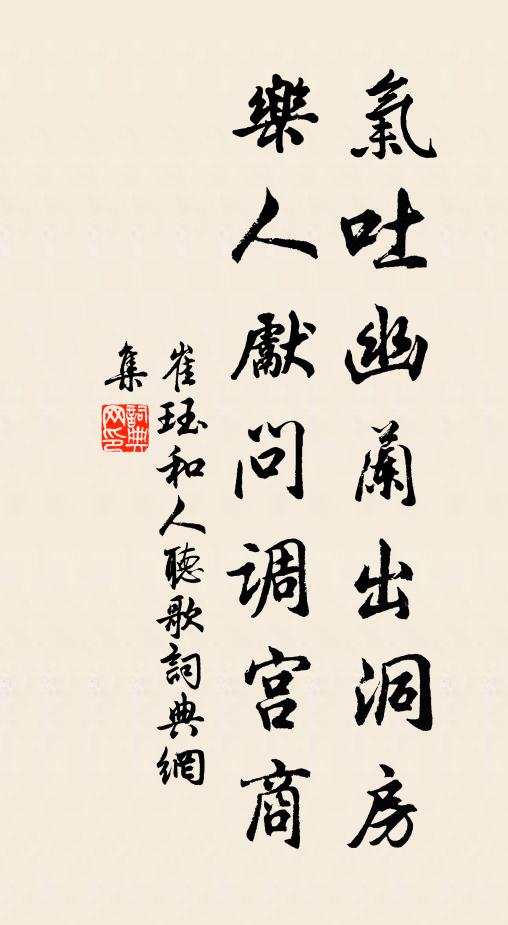 氣吐幽蘭出洞房
樂人獻問调宫商
崔珏和人聽歌詞典網
集
詞典網印